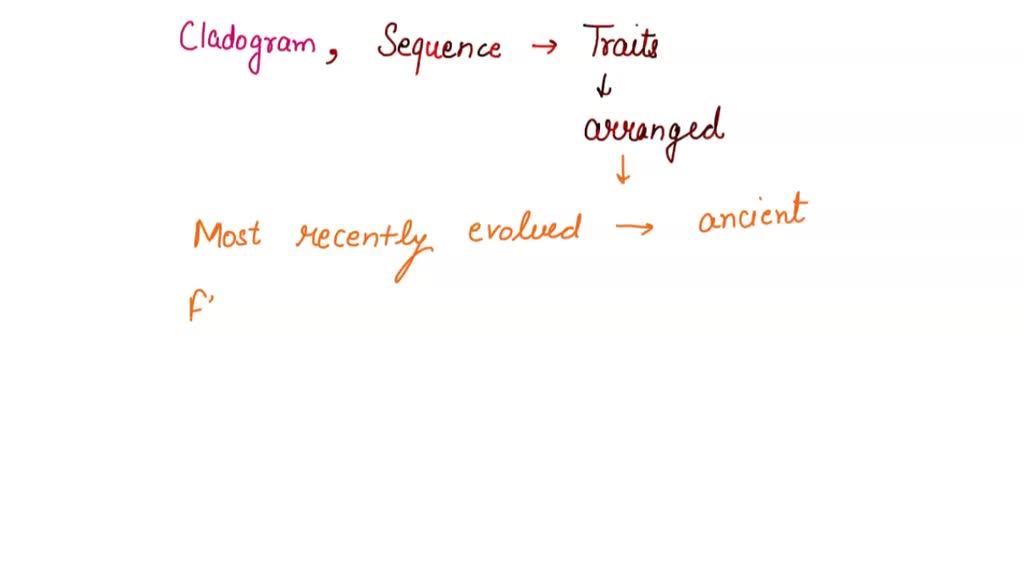 Cladogram, Sequence → Traits
↓
arranged
↓
Most recently evolved → ancient
F'